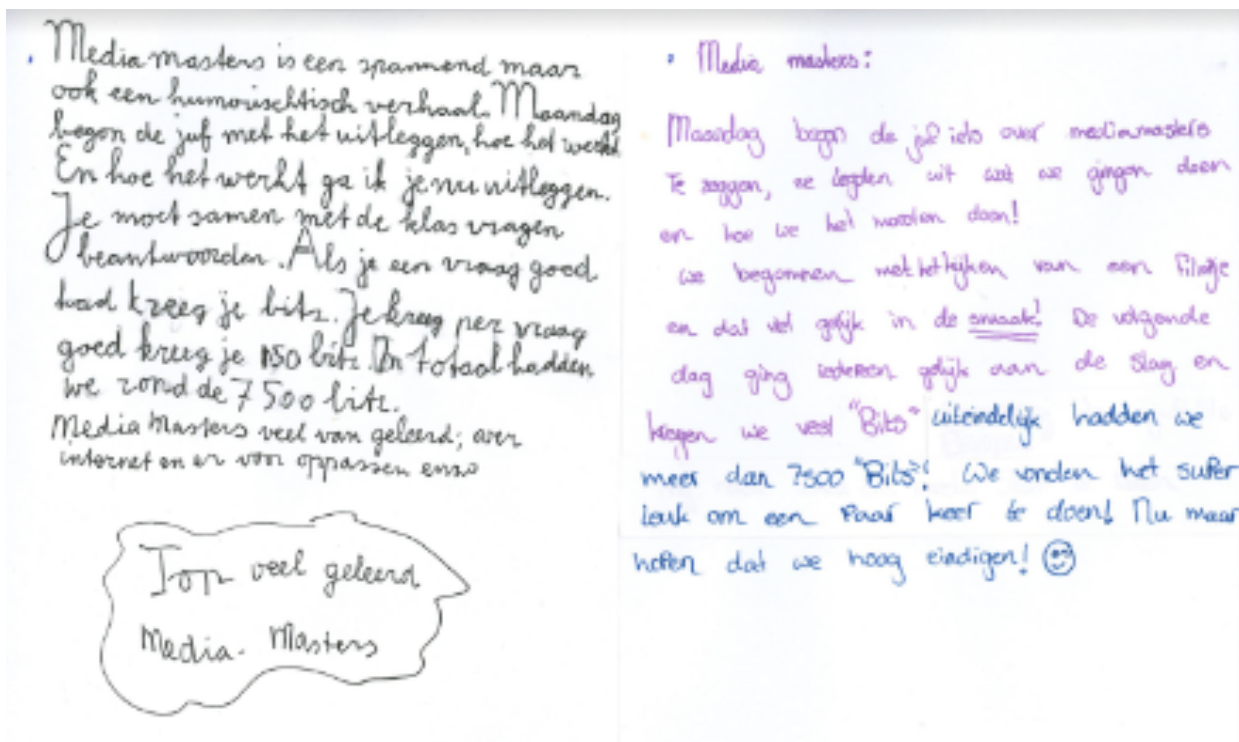 Media masters is een spannend maar
ook een humorischtisch verhaal. Maandag
begon de juf met het uitleggen, hoe het werkt
En hoe het werkt ga ik je nu uitleggen.
Je moet samen met de klas vragen
beantwoorden. Als je een vraag goed
had kreeg je bits. Je kreeg per vraag
goed kreeg je 150 bits. In totaal hadden
we rond de 7500 bits.
Media Masters veel van geleerd; over
internet en er voor oppassen enzo
Top veel geleerd
Media- Masters
• Media masters:
Maandag begon de juf iets over mediamasters
Te zeggen, ze legden uit wat we gingen doen
en hoe we het moesten doen!
we begonnen met het kijken van een filmpje
en dat viel gelijk in de smaak! De volgende
dag ging iedereen gelijk aan de slag en
kregen we veel "Bits" uiteindelijk hadden we
meer dan 7500 "Bits"! We vonden het super
leuk om een Paar keer te doen! Nu maar
hopen dat we hoog eindigen!